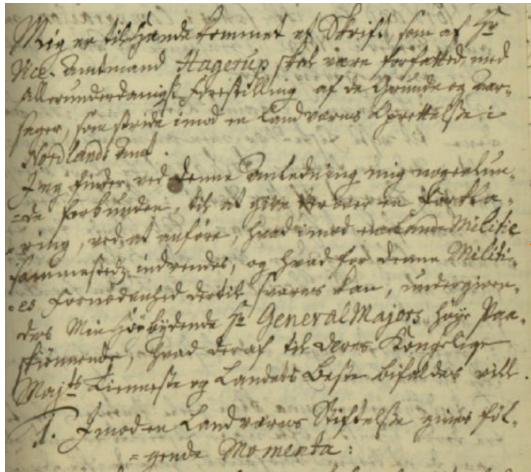 Mig er til hænde kommet et Skrift, som af Hr
Vice-Amtmand Hagerup skal være forfattet, med
Allerunderdanigst Forestilling af de Grunde og Aar-
sager, som stride imod en Landværns Oprettelse i
Nordlands Amt.
Jeg finder ved denne Anledning mig nogenlun-
de forbunden, til at give her en Forkla-
ring, ved at anføre, hvad imod Land Militie
sammestedz indvendes, og hvad for denne Militi-
es Fornødenhed dertil svares kan, undergiven-
des Min Høybydende Hr General Majors høye Paa-
skiønnende, hvad deraf til Deres Kongelige
Majts Tienneste og Landets Beste bifaldes vill.
1. Imod en Landværns Stiftelse giver føl-
gende Momenta: